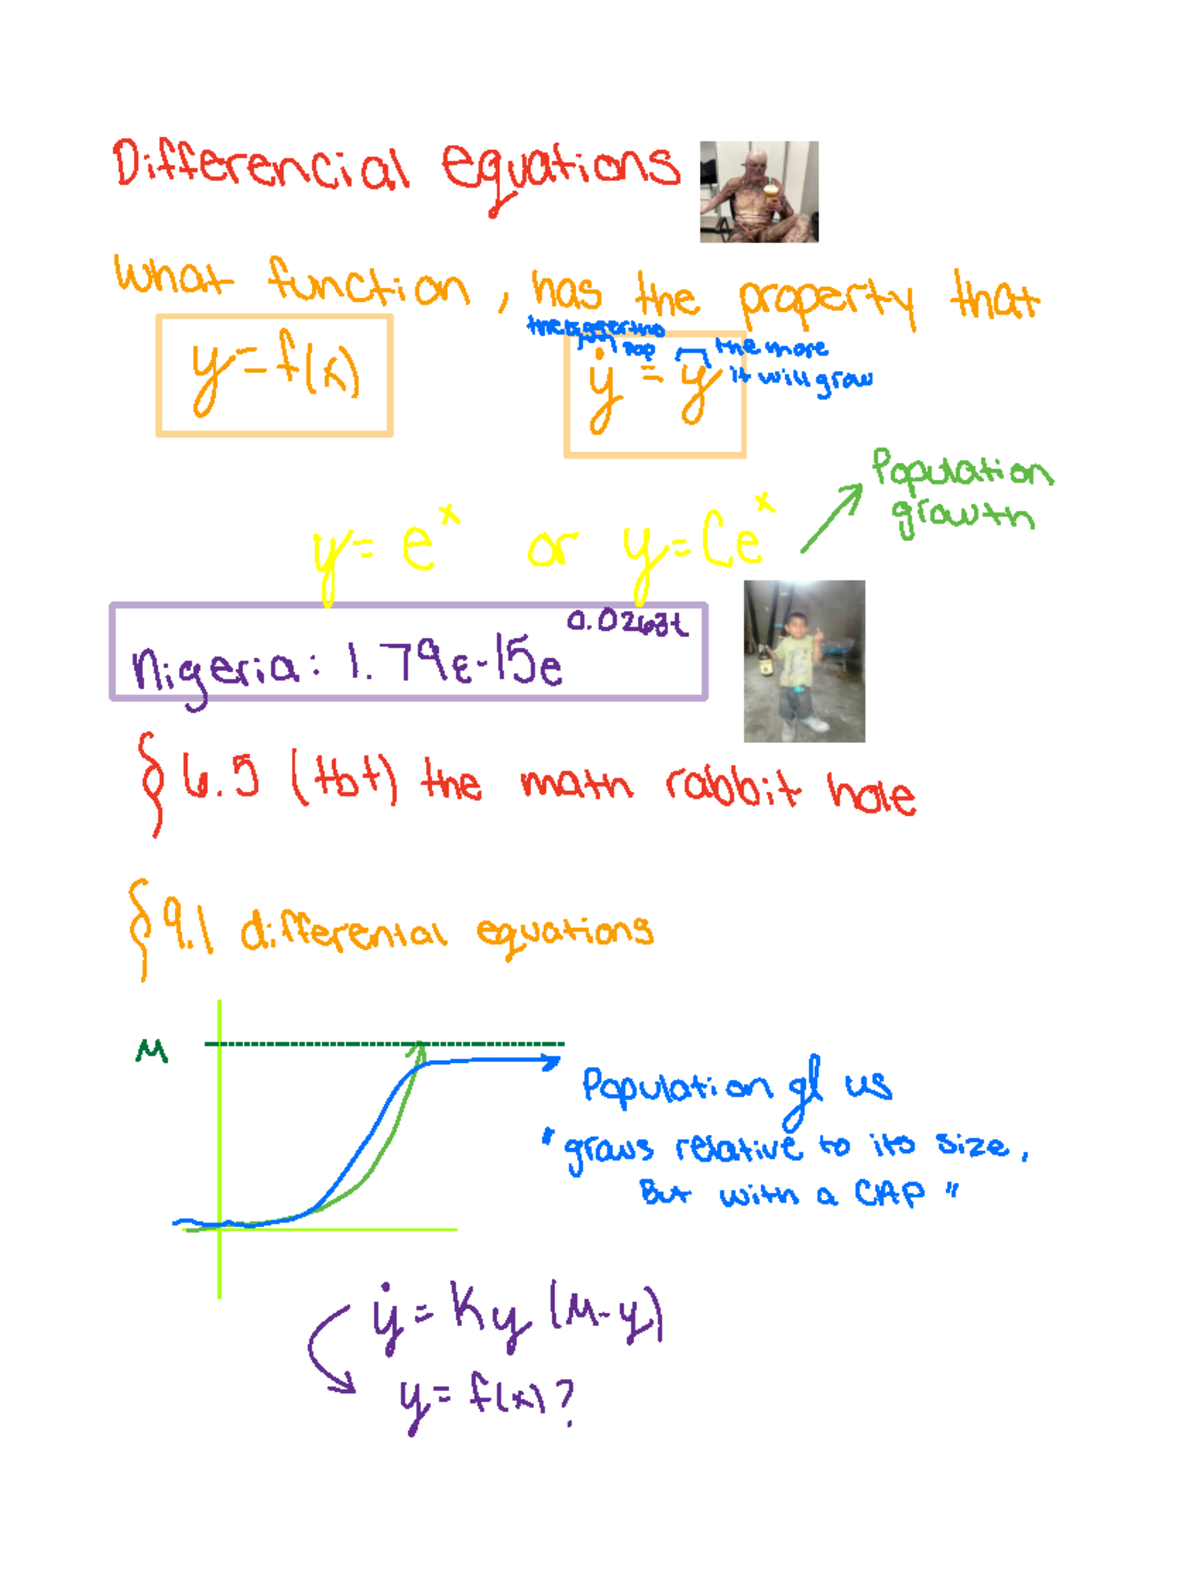 Differencial equations
What function, has the property that
the bigger the
pop
the more
it will grow
y = f(x)
ẏ = y
Population
growth
y = eˣ or y = Ceˣ
Nigeria: 1.79E-15e^0.0263t
§ 6.5 (tbt) the math rabbit hole
§ 9.1 differential equations
M
Population gl us
"grows relative to its size,
But with a CAP"
ẏ = Ky (M-y)
y = f(x)?